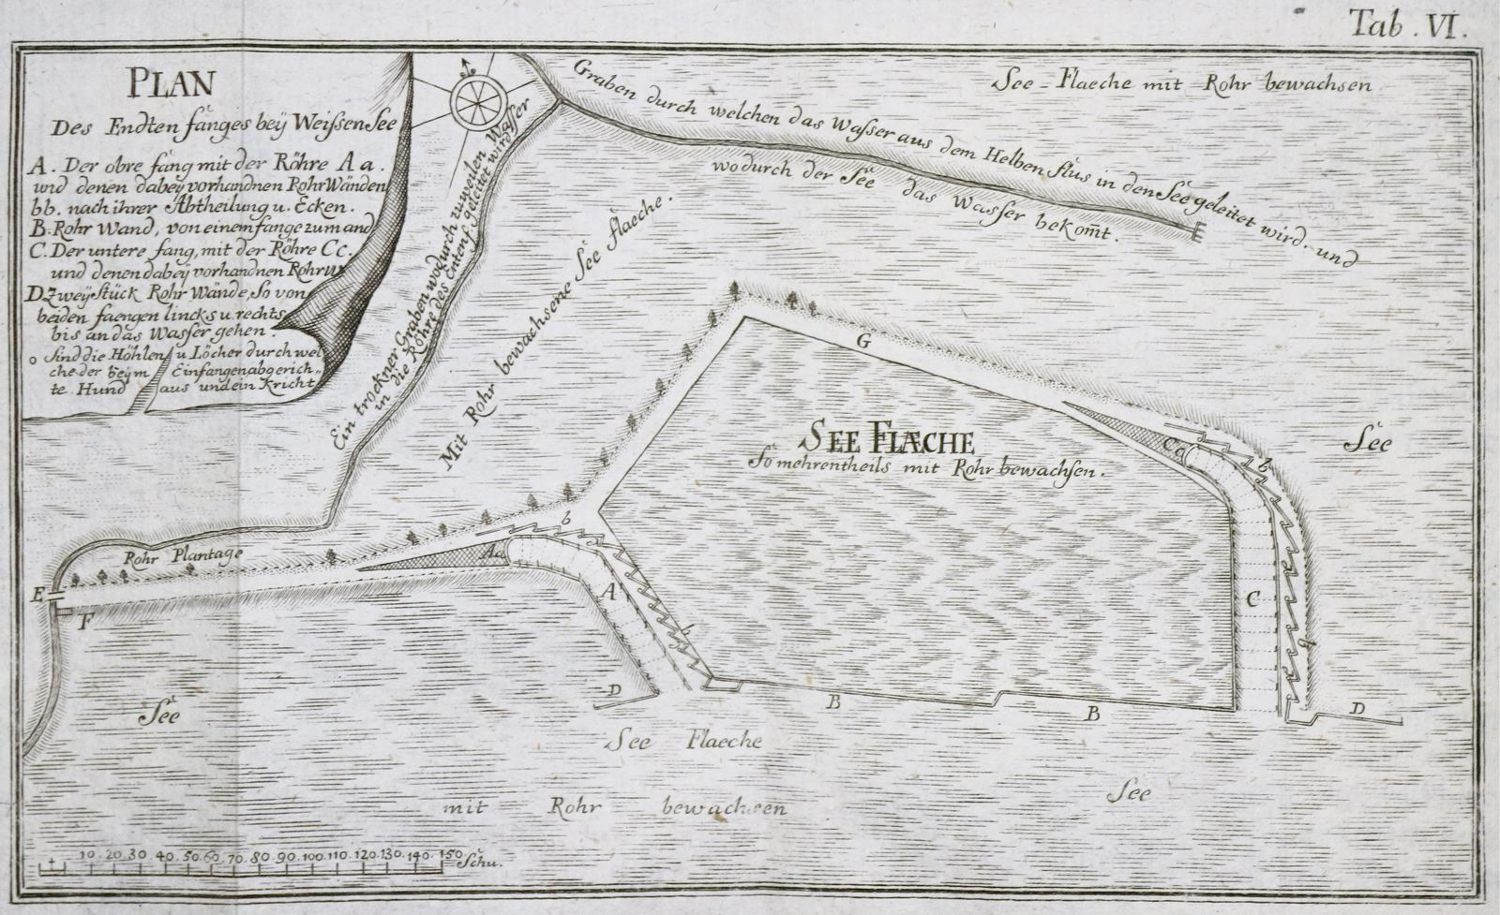 Tab. VI.
PLAN
Des Endten fanges beÿ Weißensee
A. Der obre fang mit der Röhre A a.
und denen dabey vorhandnen Rohr Wänden
bb. nach ihrer Abtheilung u. Ecken.
B. Rohr Wand, von einem fange zum and
C. Der untere fang, mit der Röhre Cc.
und denen dabey vorhandnen Rohr W
D Zweÿ Stück Rohr Wände, So von
beiden faengen lincks u. rechts
bis an das Wasser gehen.
o Sind die Höhlen u. Löcher durch wel
che der beÿm Einfangen abgerich-
te Hund aus und ein Kricht
Graben durch welchen das Wasser aus dem Helben flus in den See geleitet wird. und
wodurch der See das Wasser bekom̅t.
See-Flaeche mit Rohr bewachsen
Ein trockner Graben wodurch zuweilen Wasser
in die Röhre des Entenf. geleitet wird
Mit Rohr bewachsene See flaeche.
G
SEE FLÆCHE
So mehrentheils mit Rohr bewachsen.
See
Ca
b
b
Rohr Plantage
Aa
E
F
A
b
C
b
D
B
B
D
See
See Flaeche
See
mit Rohr bewachsen
10. 20. 30. 40. 50. 60. 70. 80. 90. 100. 110. 120. 130. 140. 150. Schu.